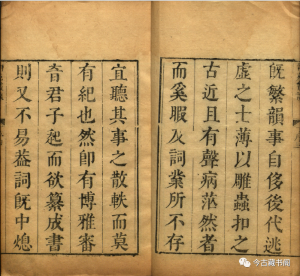 旣繁韻事自侈後代逃
虛之士薄以雕蟲扣之
古近且有聲病茫然者
而奚暇及詞業所不存
宜聽其事之散軼而莫
有紀也然卽有博雅審
音君子起而欲纂成書
則又不易葢詞旣中熄
今古藏书院